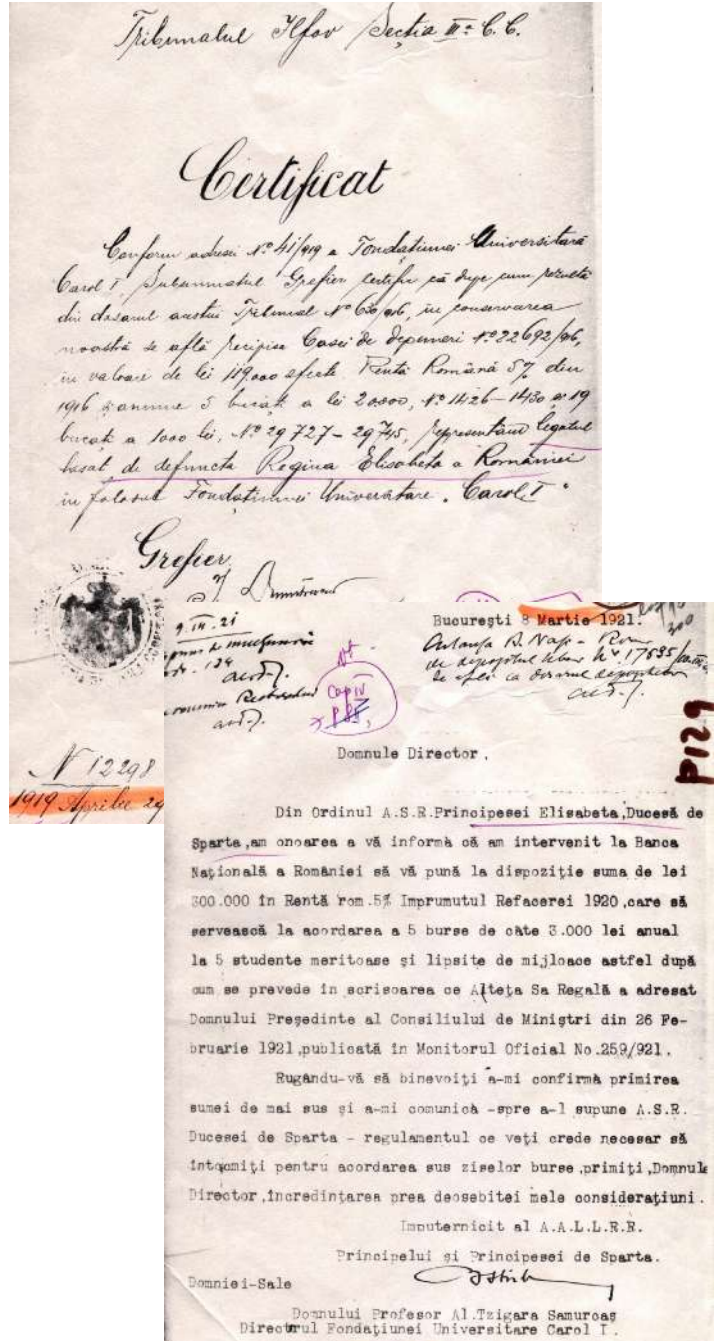 Tribunalul Ilfov Secția III-a C.C.
Certificat
Conform adresei No 41/919 a Fondațiunei Universitară
Carol I, Subsemnatul Grefier certific că dupe cum rezultă
din dosarul acestui Tribunal No 630/916, în conservarea
noastră se află recipisa Casei de Depuneri No 22692/916,
în valoare de lei 119.000 efecte Rentă Română 5% din
1916 și anume 5 bucăți a lei 20000, No 1426-1430 și 19
bucăți a 1000 lei, No 29727-29745, reprezentând legatul
lăsat de defuncta Regina Elisabeta a României
în folosul Fondațiunei Universitare "Carol I"
Grefier,
N 12298
1919 Aprilie 29
București 8 Martie 1921.
9.III.21
P129
Domnule Director,
Din Ordinul A.S.R.Principesei Elisabeta,Ducesă de
Sparta,am onoarea a vă informà că am intervenit la Banca
Națională a României să vă pună la dispoziție suma de lei
300.000 în Rentă rom.5% Imprumutul Refacerei 1920,care să
servească la acordarea a 5 burse de câte 3.000 lei anual
la 5 studente meritoase și lipsite de mijloace astfel după
cum se prevede în scrisoarea ce Alteța Sa Regală a adresat
Domnului Președinte al Consiliului de Miniștri din 26 Fe-
bruarie 1921,publicată în Monitorul Oficial No.259/921.
Rugându-vă să binevoiți a-mi confirmà primirea
sumei de mai sus și a-mi comunicà -spre a-l supune A.S.R.
Ducesei de Sparta - regulamentul ce veți crede necesar să
întocmiți pentru acordarea sus ziselor burse,primiți,Domnule
Director,încredințarea prea deosebitei mele considerațiuni.
Imputernicit al A.A.L.L.R.R.
Principelui și Principesei de Sparta.
Domniei-Sale
Domnului Profesor Al.Tzigara Samurcaș
Directrul Fondațiunei Universitare Carol I.